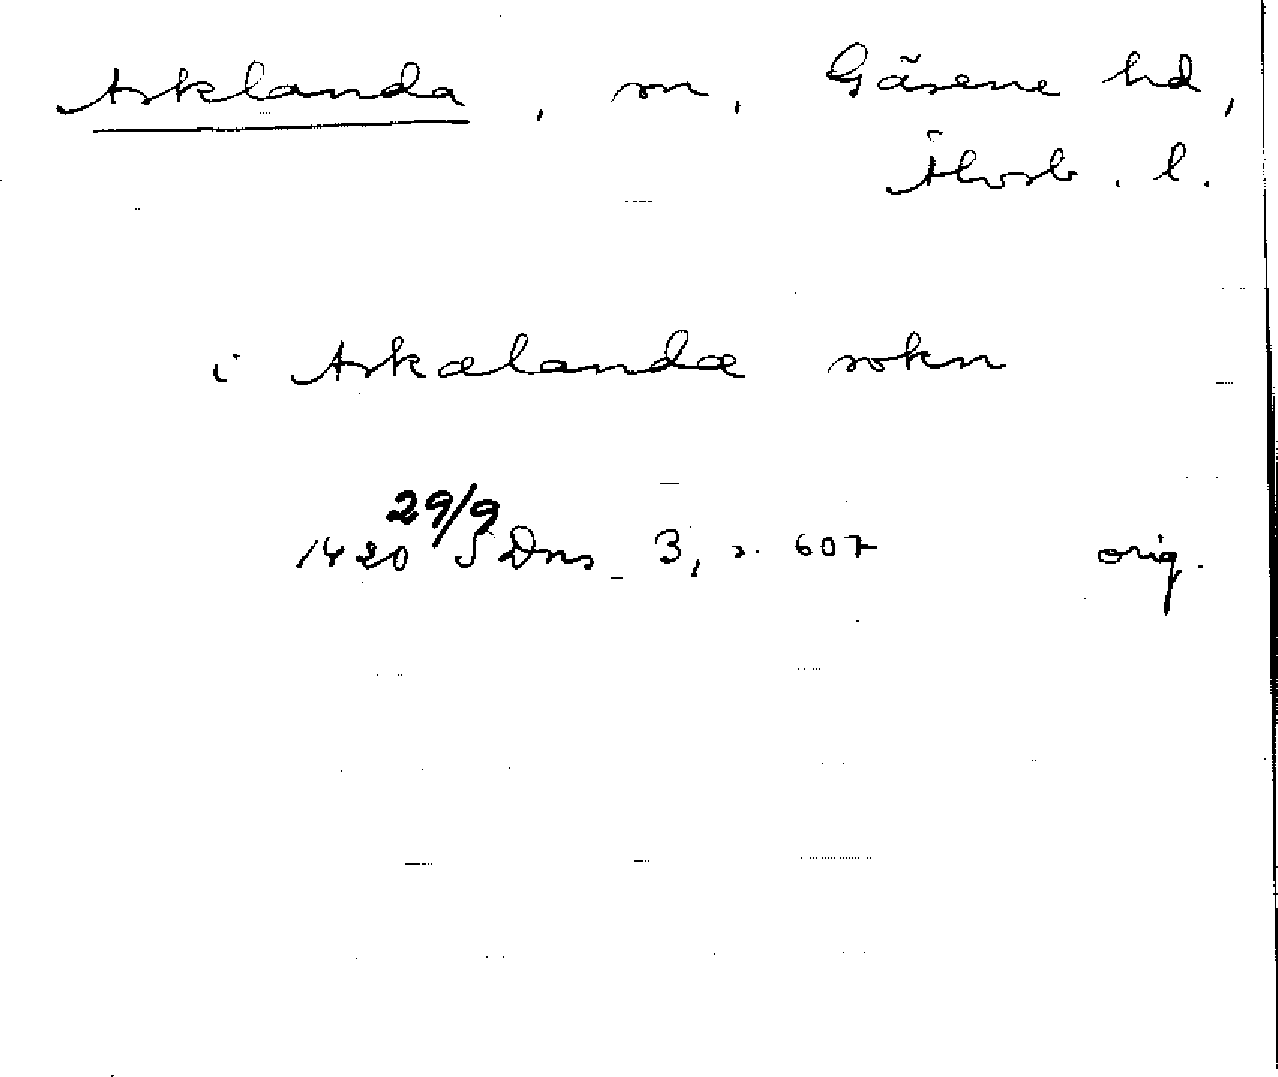 Asklanda, sn, Gäsene hd,
Älvsb. l.
i Askælandæ sokn
29/9
1420 SDns 3, s. 607 orig.